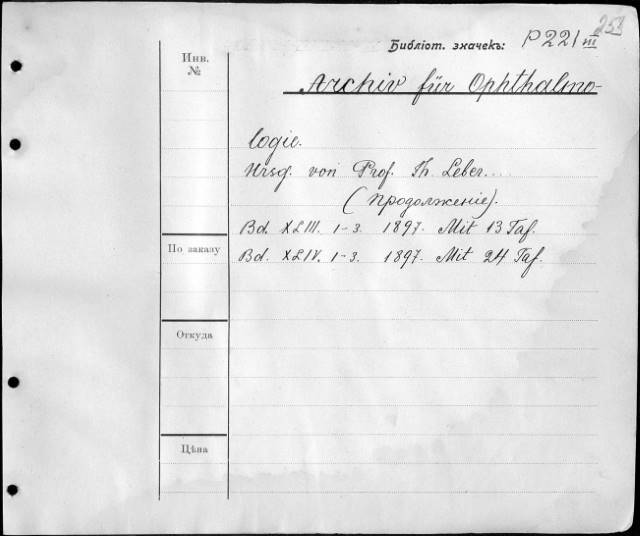 258
Библіот. значекъ: P221 III
Инв.
№
Archiv für Ophthalmo-
logie.
Hrsg. von Prof. Th. Leber....
(Продолженіе).
Bd. XLIII. 1-3. 1897. Mit 13 Taf.
По заказу
Bd. XLIV. 1-3. 1897. Mit 24 Taf.
Откуда
Цѣна